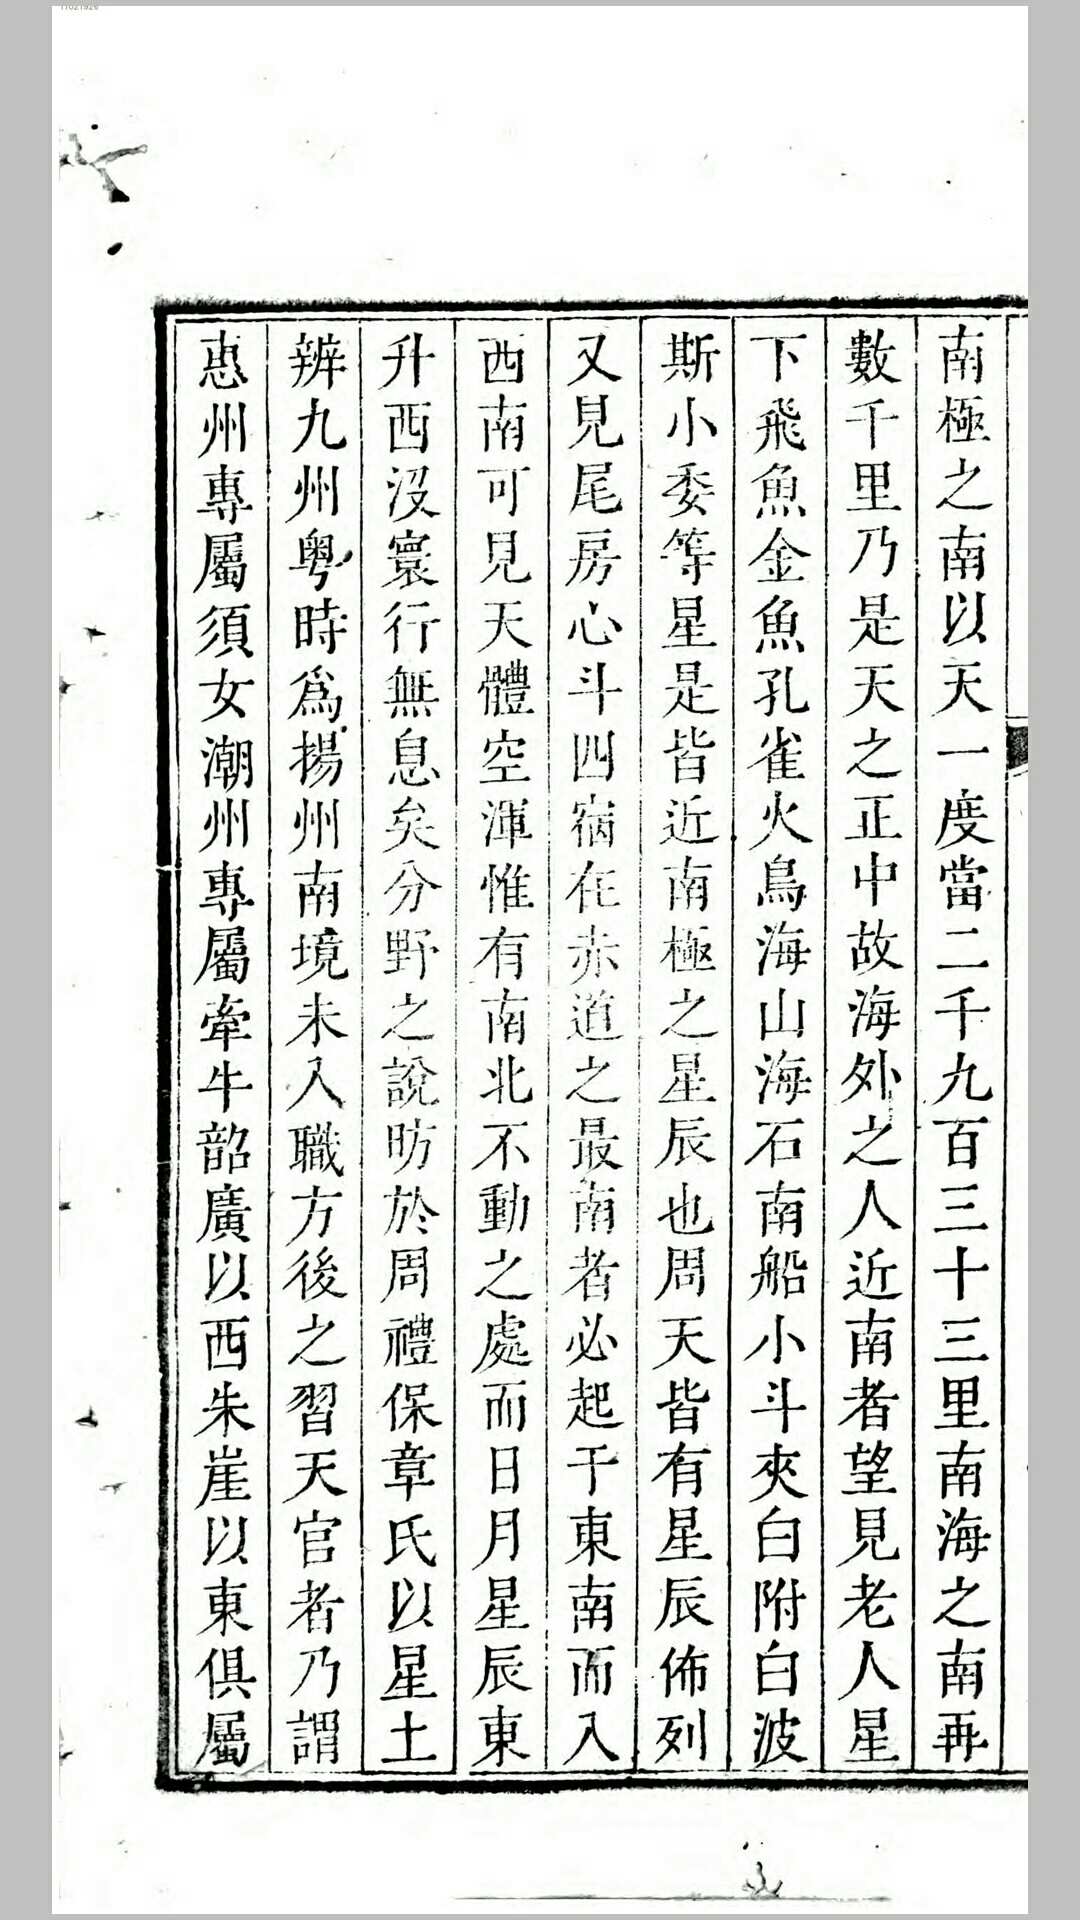 南極之南以天一度當二千九百三十三里南海之南再
數千里乃是天之正中故海外之人近南者望見老人星
下飛魚金魚孔雀火鳥海山海石南船小斗夾白附白波
斯小委等星是皆近南極之星辰也周天皆有星辰佈列
又見尾房心斗四宿在赤道之最南者必起于東南而入
西南可見天體空渾惟有南北不動之處而日月星辰東
升西沒寰行無息矣分野之說昉於周禮保章氏以星土
辨九州粵時爲揚州南境未入職方後之習天官者乃謂
惠州專屬須女潮州專屬牽牛韶廣以西朱崖以東俱屬